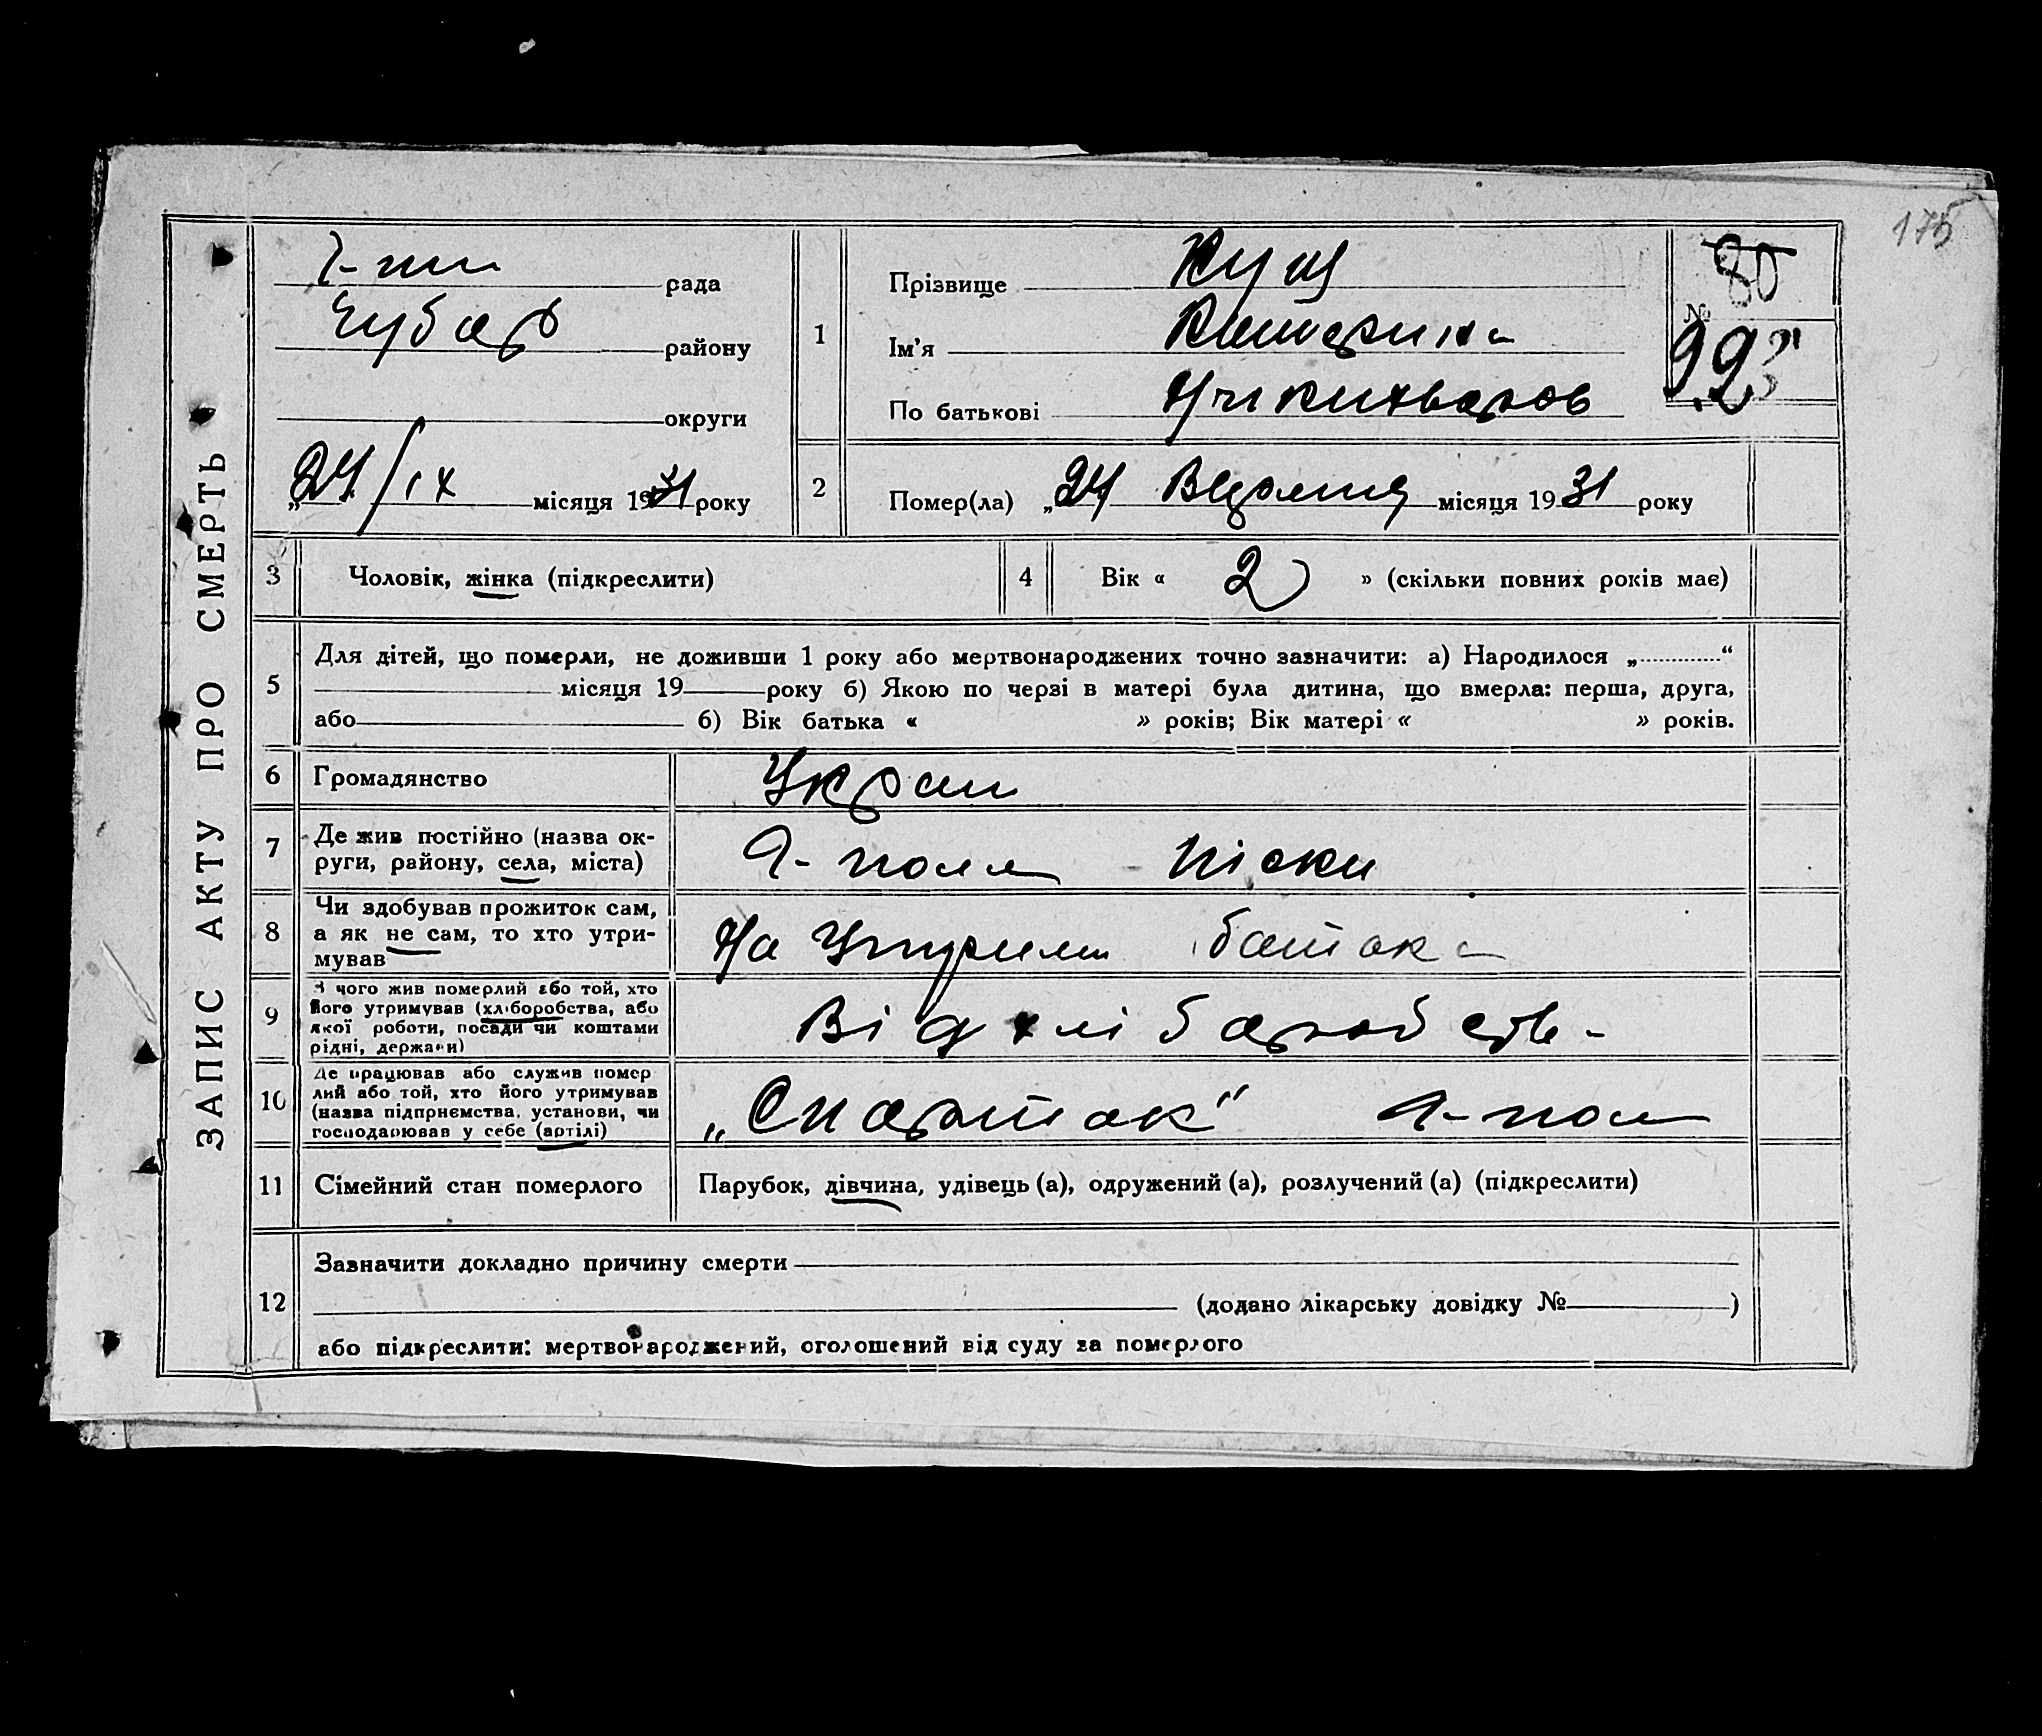 175
ЗАПИС АКТУ ПРО СМЕРТЬ
рада
Чубар району
округи
24/IX місяця 1931 року
1
Прізвище Кущ
Ім'я Катерина
По батькові Никихваров
80
№
993
2
Помер(ла) „24 Вересня місяця 1931 року
3
Чоловік, жінка (підкреслити)
4
Вік « 2 » (скільки повних років має)
5
Для дітей, що померли, не доживши 1 року або мертвонароджених точно зазначити: а) Народилося „ “
місяця 19 року б) Якою по черзі в матері була дитина, що вмерла: перша, друга,
або б) Вік батька « » років; Вік матері « » років.
6
Громадянство
Украи
7
Де жив постійно (назва ок-
руги, району, села, міста)
Я-поля Піски
8
Чи здобував прожиток сам,
а як не сам, то хто утри-
мував
На Утрим батька
9
З чого жив померлий або той, хто
його утримував (хліборобства, або
якої роботи, посади чи коштами
рідні, держави)
Від хлібаробств-
10
Де працював або служив помер
лий або той, хто його утримував
(назва підприємства, установи, чи
господарював у себе (артілі)
„Спартак" Я-пол
11
Сімейний стан померлого
Парубок, дівчина, удівець (а), одружений (а), розлучений (а) (підкреслити)
12
Зазначити докладно причину смерти
(додано лікарську довідку № )
або підкреслити: мертвонароджений, оголошений від суду за померлого